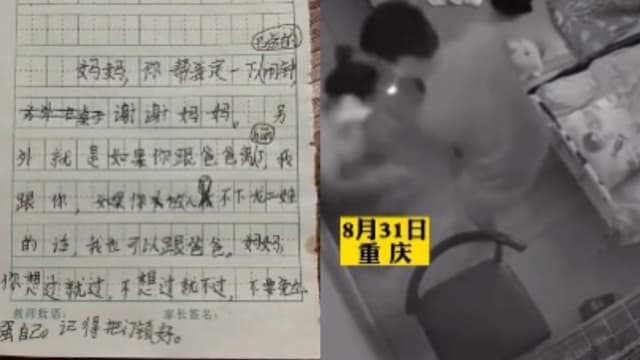 妈妈,你帮我定一下闹钟,
谢谢妈妈。另
外就是如果你跟爸爸离了,我
跟你,如果你 人 不下 二娃
的话,我也可以跟爸爸。妈妈
你想过就过,不想过就不过,不要
教师致语: 家长签名:
自己。记得把门锁好。
8月31日
重庆